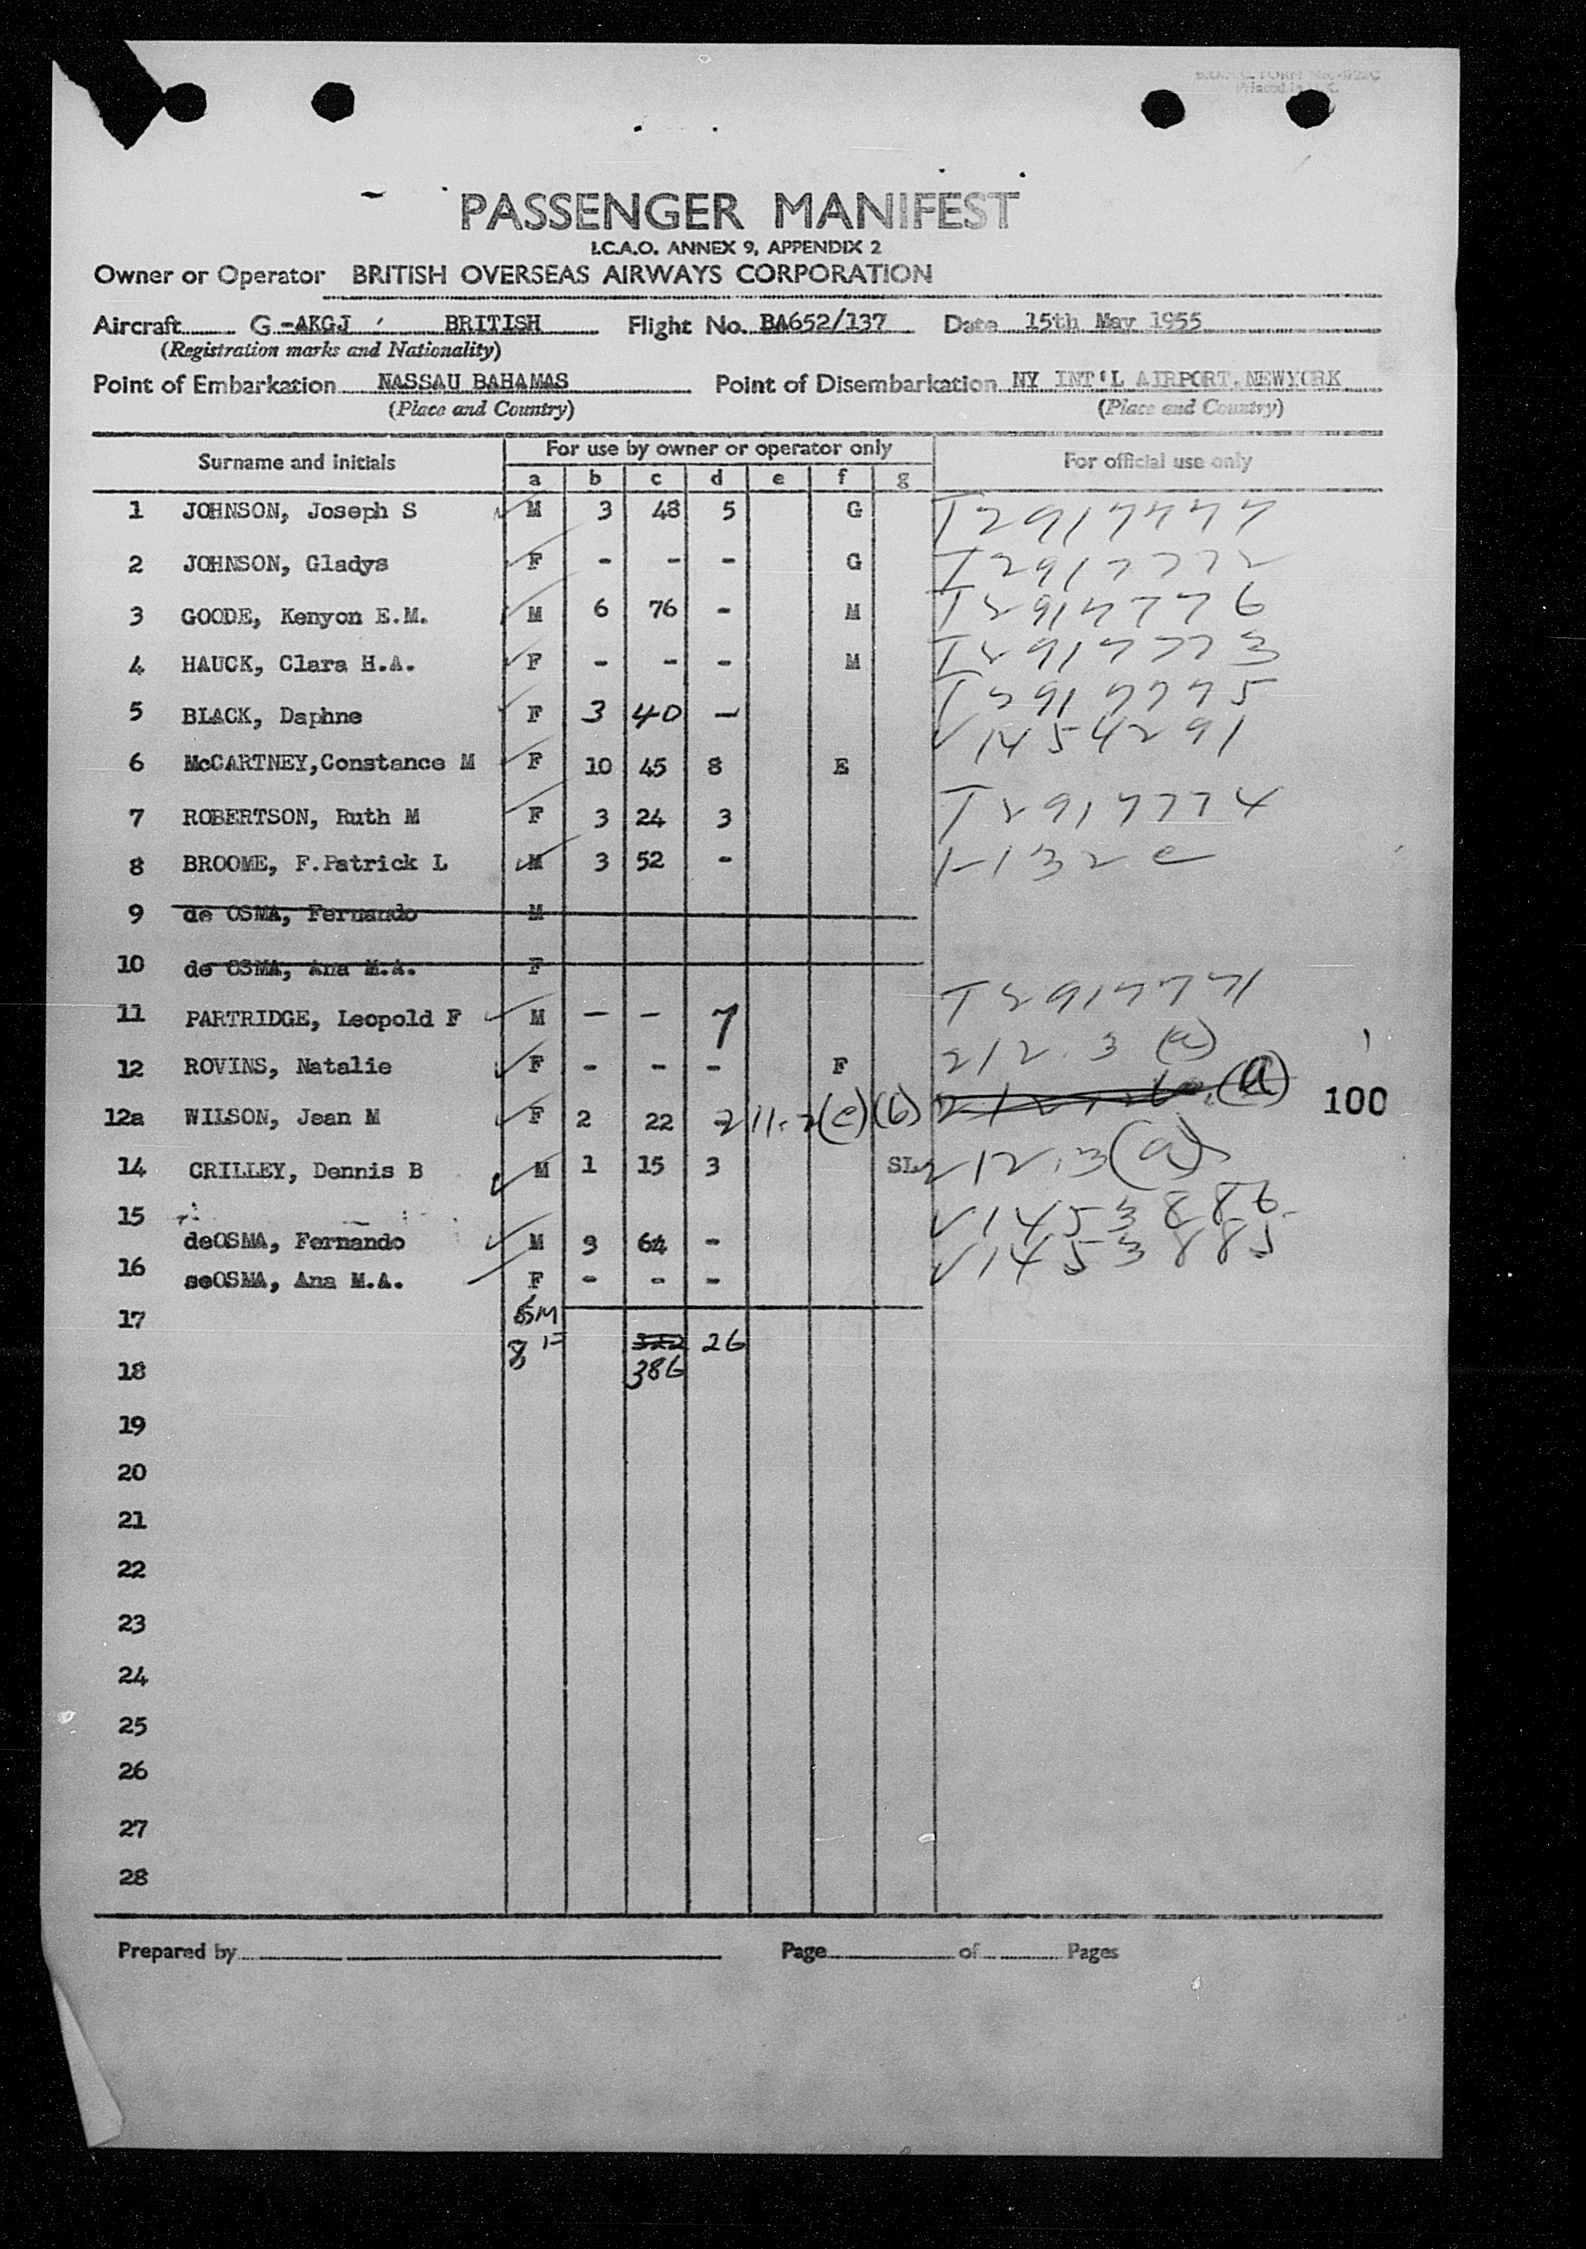 PASSENGER MANIFEST
I.C.A.O. ANNEX 9, APPENDIX 2
Owner or Operator BRITISH OVERSEAS AIRWAYS CORPORATION
Aircraft G-AKGJ BRITISH Flight No. BA652/137 Date 15th May 1955
(Registration marks and Nationality)
Point of Embarkation NASSAU BAHAMAS Point of Disembarkation NY INT'L AIRPORT, NEWYORK
(Place and Country) (Place and Country)
Surname and initials For use by owner or operator only For official use only
a b c d e f g
1 JOHNSON, Joseph S M 3 48 5 G I2917777
2 JOHNSON, Gladys F - - - G I2917772
3 GOODE, Kenyon E.M. M 6 76 - M I2917776
4 HAUCK, Clara H.A. F - - - M I2917773
5 BLACK, Daphne F 3 40 - I2917775
6 McCARTNEY,Constance M F 10 45 8 E V1454291
7 ROBERTSON, Ruth M F 3 24 3 I2917774
8 BROOME, F.Patrick L M 3 52 - 1-132 c
9 de OSMA, Fernando M
10 de OSMA, Ana M.A. F
11 PARTRIDGE, Leopold F M - - 7 I2917771
12 ROVINS, Natalie F - - - F 212.3 (a)
12a WILSON, Jean M F 2 22 - 211.2(c)(6) (a) 100
14 CRILLEY, Dennis B M 1 15 3 SL 212.3(a)
15
deOSMA, Fernando M 9 64 - V1453886
16 seOSMA, Ana M.A. F - - - V1453885
17 6M
8 F 322 26
18 386
19
20
21
22
23
24
25
26
27
28
Prepared by Page of Pages